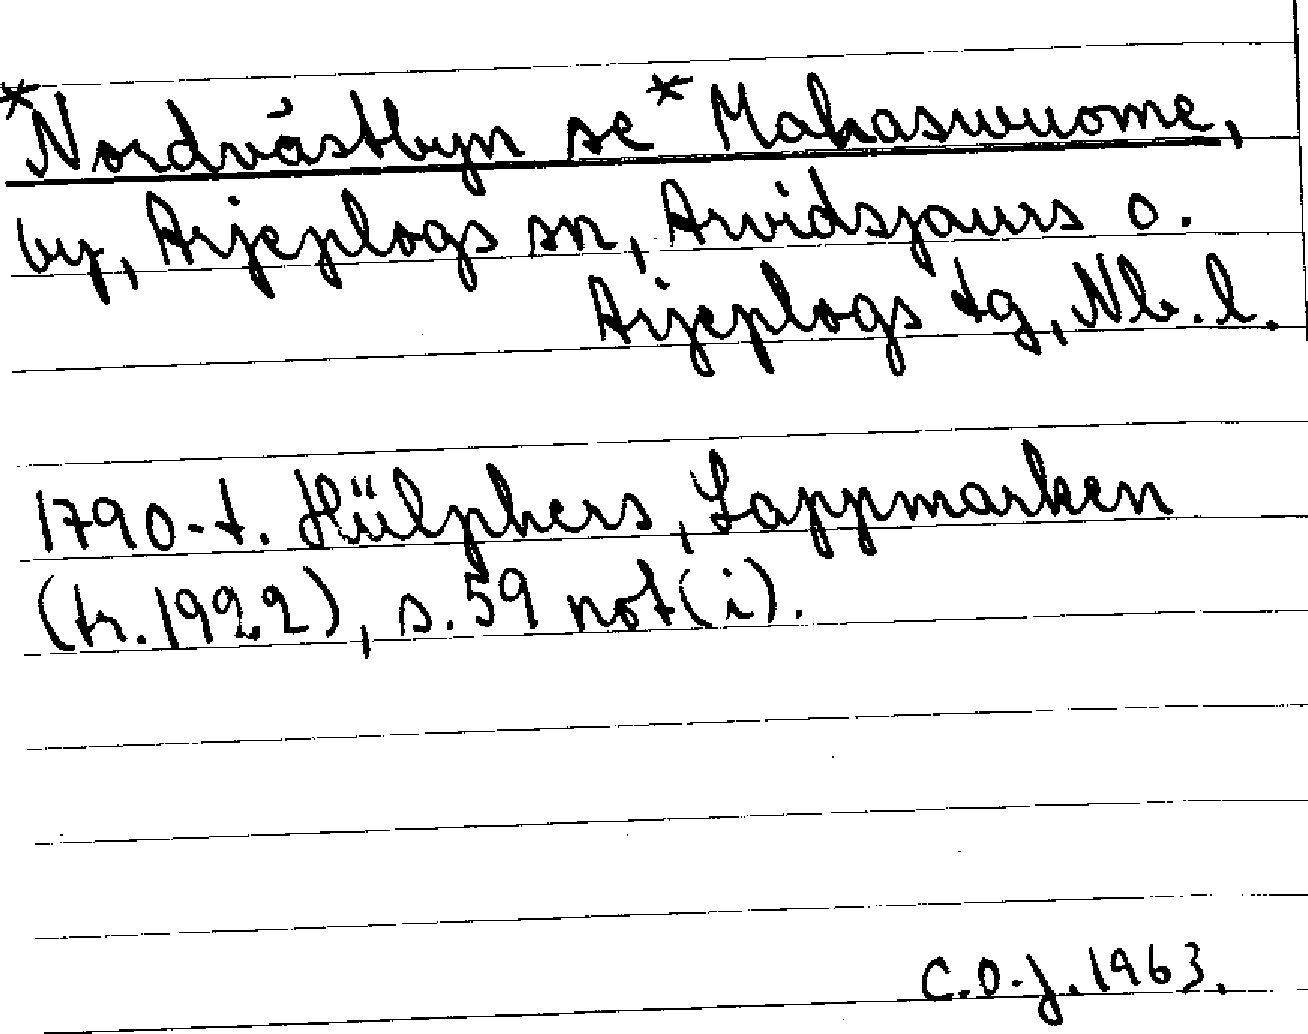 *Nordvästbyn se *Makaswuome,
by, Arjeplogs sn, Arvidsjaurs o.
Arjeplogs tg, Nb. l.
1790-t. Hülphers, Lappmarken
(tr. 1922), s. 59 not(i).
C.O-j. 1963.